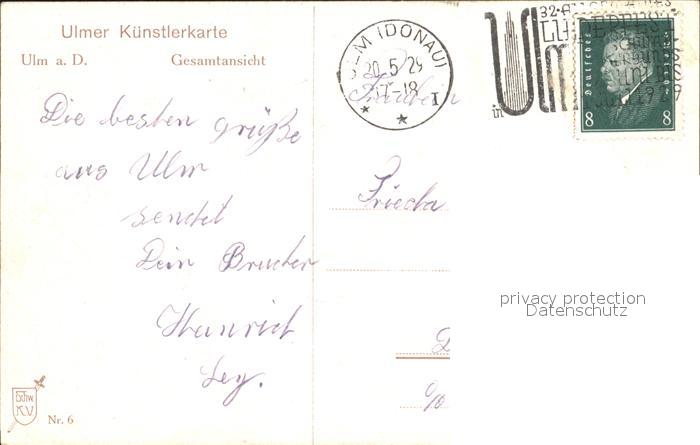 Ulmer Künstlerkarte
Ulm a. D. Gesamtansicht
Die besten grüße
aus Ulm
sendet
Dein Bruder
Heinrich
Ley.
Schw.
K.V.
Nr. 6
ULM (DONAU)
20.5.29
17-18
I
in Ulm
32.
Deutsches Reich
8 8
Fräulein
Frieda
privacy protection
Datenschutz